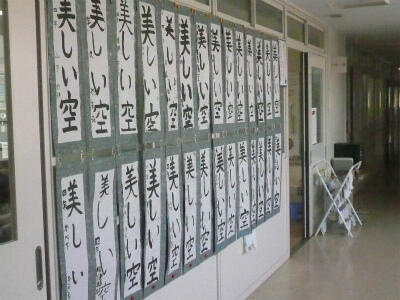 美しい空
美しい空
美しい空
美しい空
美しい空
美しい空
美しい空
美しい空
美しい空
美しい空
美しい空
美しい空
美しい空
美しい空
い
美しい空
美しい空
美しい空
美しい空
美しい空
美しい空
美しい空
美しい空
美しい空
美しい空
美しい空
美しい空
美しい空